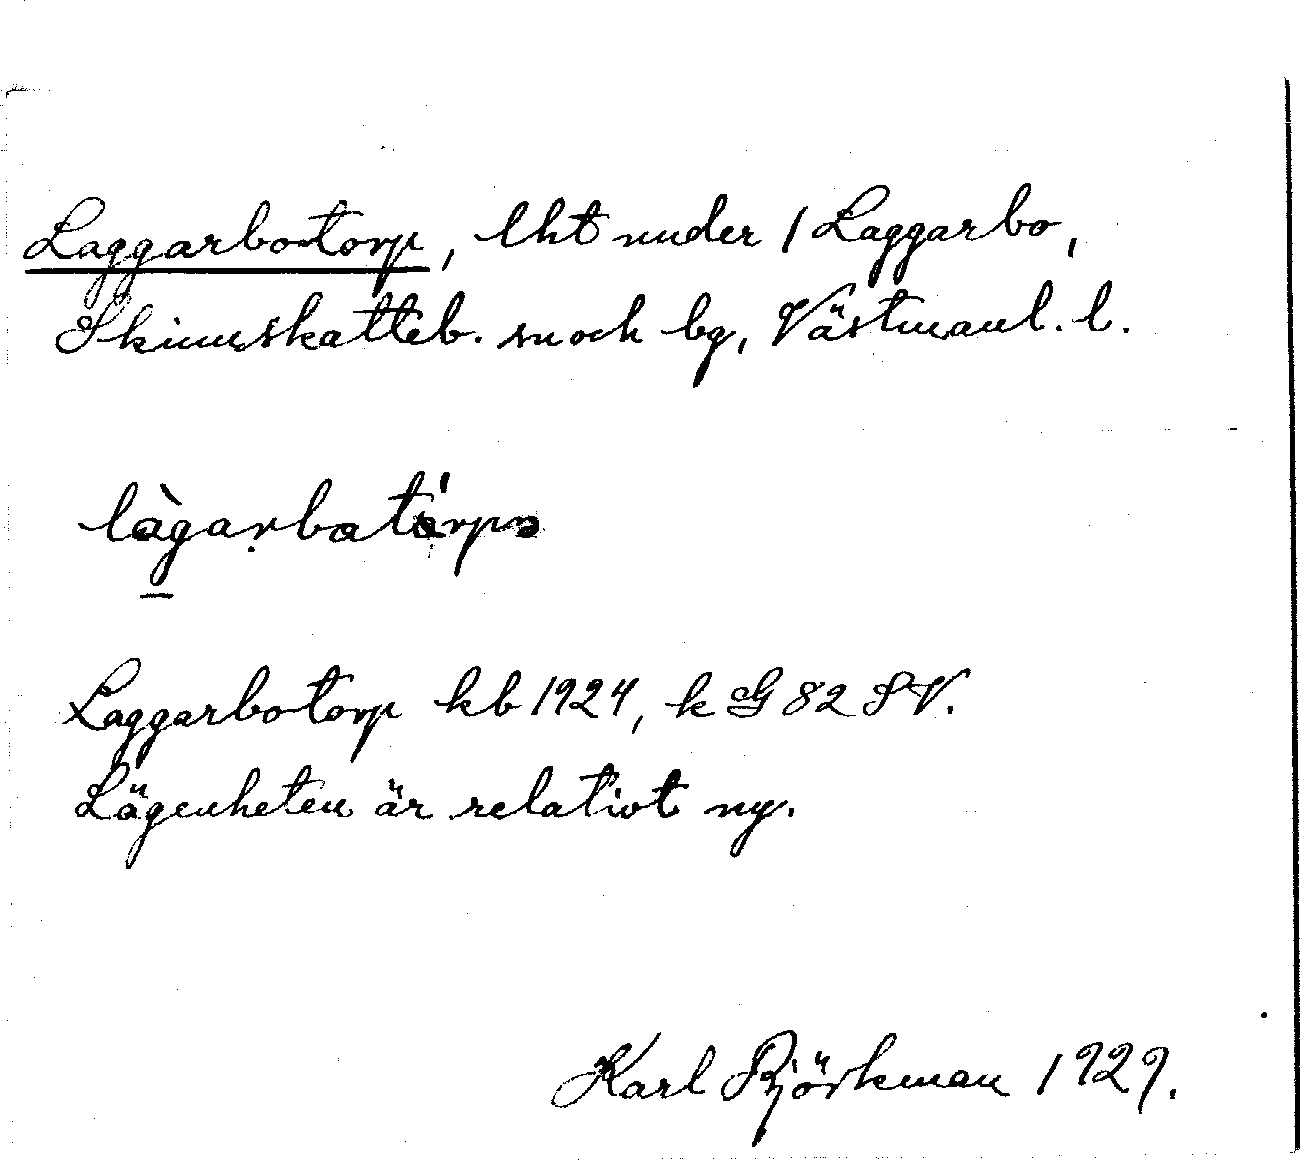 Laggarbotorp, lht under 1 Laggarbo,
Skinnskatteb. sn och bg, Västmanl. l.
làgarbatárpə
Laggarbotorp kb 1924, k G 82 SV.
Lägenheten är relativt ny.
Karl Björkman 1929.